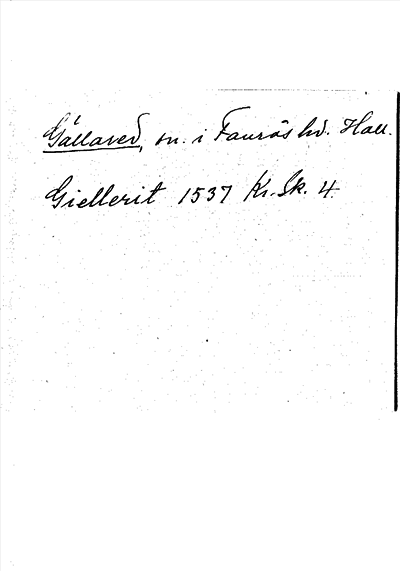 Gällared, sn. i Faurås hd. Hall.
Giellerit 1537 Kr. Sk. 4.